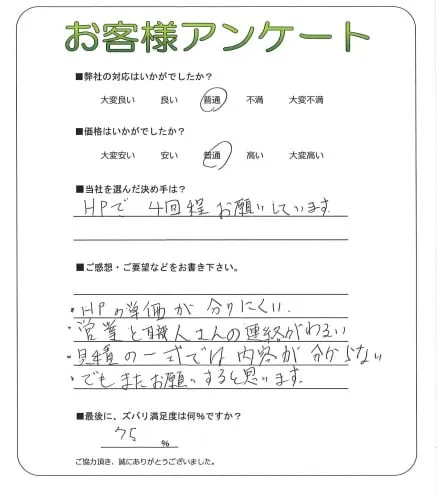 お客様アンケート
■弊社の対応はいかがでしたか？
大変良い 良い 普通 不満 大変不満
■価格はいかがでしたか？
大変安い 安い 普通 高い 大変高い
■当社を選んだ決め手は？
HPで 4回程お願いしています.
■ご感想・ご要望などをお書き下さい。
・HPの単価が分りにくい.
・営業と職人さんの連絡がわるい
・見積の一式では内容が分からない
・でもまたお願いすると思います.
■最後に、ズバリ満足度は何%ですか？
75 %
ご協力頂き、誠にありがとうございました。